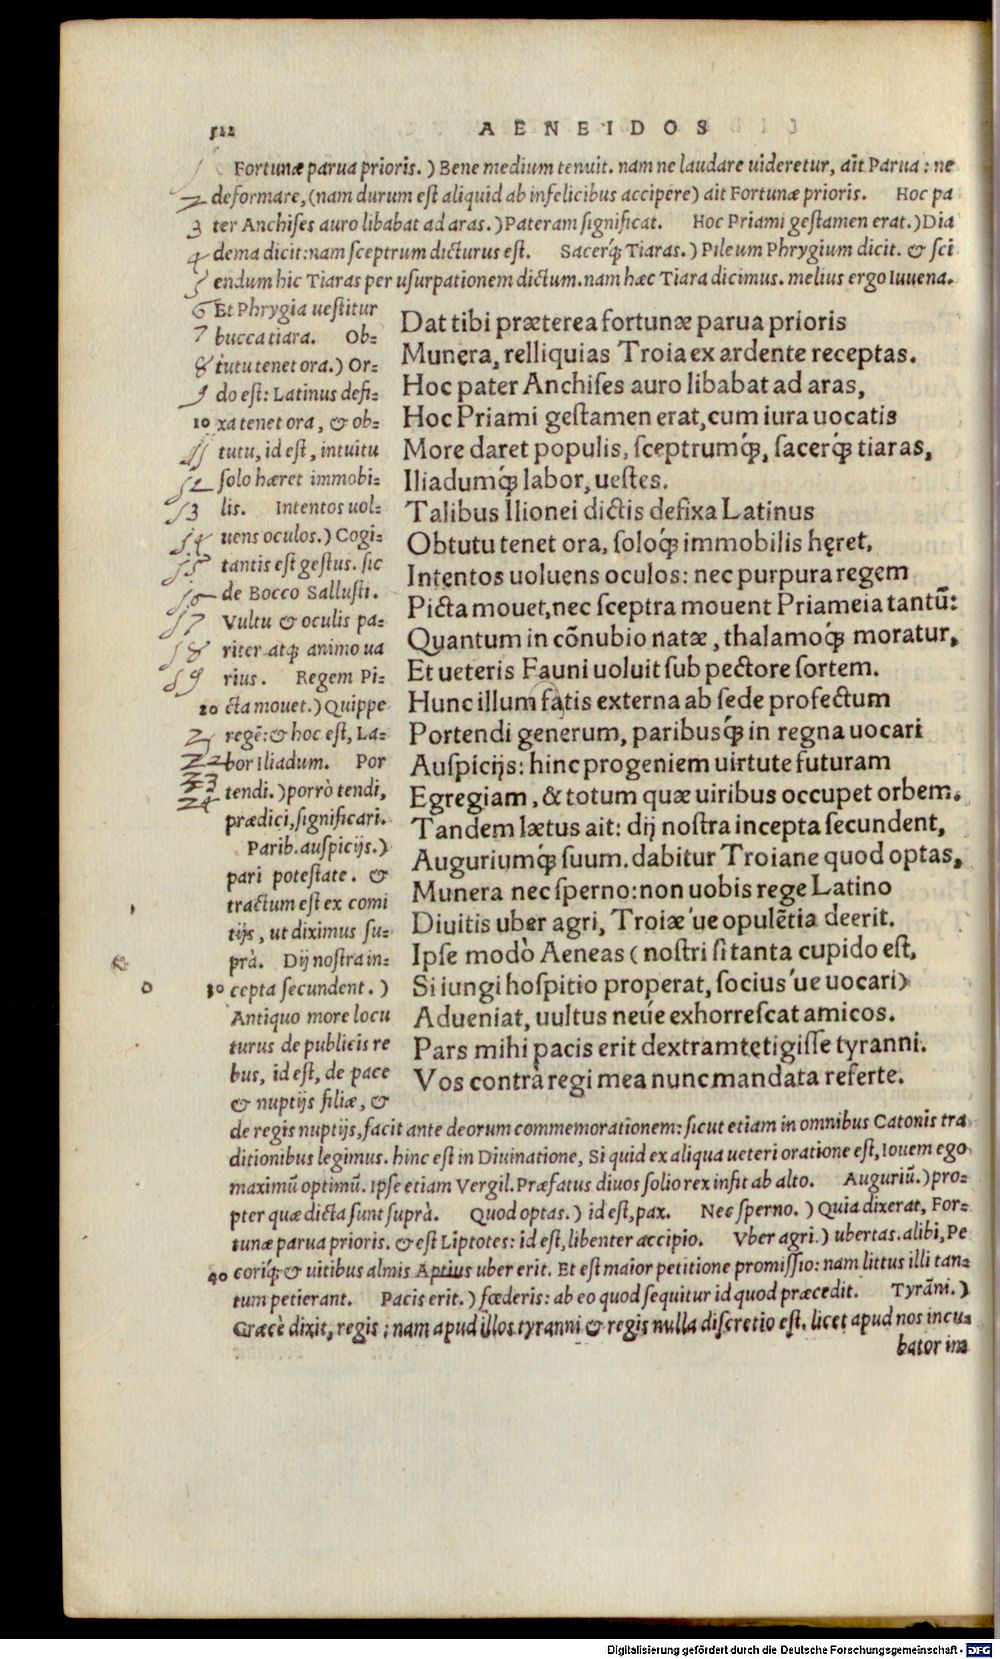 512
AENEIDOS
Fortunæ parua prioris.) Bene medium tenuit. nam ne laudare uideretur, ait Parua: ne
deformare, (nam durum est aliquid ab infelicibus accipere) ait Fortunæ prioris. Hoc pa
ter Anchises auro libabat ad aras.) Pateram significat. Hoc Priami gestamen erat.) Dia
dema dicit: nam sceptrum dicturus est. Sacerq́; Tiaras.) Pileum Phrygium dicit. & sci
endum hic Tiaras per usurpationem dictum. nam hæc Tiara dicimus. melius ergo Iuuena.
Et Phrygia uestitur
bucca tiara. Ob-
tutu tenet ora.) Or-
do est: Latinus defi-
10 xa tenet ora, & ob-
tutu, id est, intuitu
solo hæret immobi-
lis. Intentos uol-
uens oculos.) Cogi-
tantis est gestus. sic
de Bocco Sallusti.
Vultu & oculis pa-
riter atq; animo ua
rius. Regem Pi-
20 cta mouet.) Quippe
regē: & hoc est, La-
bor Iliadum. Por
tendi.) porrò tendi,
prædici, significari.
Parib. auspicijs.)
pari potestate. &
tractum est ex comi
tijs, ut diximus su-
prà. Dij nostra in-
30 cepta secundent.)
Antiquo more locu
turus de publicis re
bus, id est, de pace
& nuptijs filiæ, &
Dat tibi præterea fortunæ parua prioris
Munera, relliquias Troia ex ardente receptas.
Hoc pater Anchises auro libabat ad aras,
Hoc Priami gestamen erat, cum iura uocatis
More daret populis, sceptrumq́;, sacerq́; tiaras,
Iliadumq́; labor, uestes.
Talibus Ilionei dictis defixa Latinus
Obtutu tenet ora, soloq́; immobilis hęret,
Intentos uoluens oculos: nec purpura regem
Picta mouet, nec sceptra mouent Priameia tantū:
Quantum in cōnubio natæ, thalamoq́; moratur,
Et ueteris Fauni uoluit sub pectore sortem.
Hunc illum fatis externa ab sede profectum
Portendi generum, paribusq́; in regna uocari
Auspicijs: hinc progeniem uirtute futuram
Egregiam, & totum quæ uiribus occupet orbem.
Tandem lætus ait: dij nostra incepta secundent,
Auguriumq́; suum. dabitur Troiane quod optas,
Munera nec sperno: non uobis rege Latino
Diuitis uber agri, Troiæ ue opulētia deerit.
Ipse modò Aeneas (nostri si tanta cupido est,
Si iungi hospitio properat, socius ue uocari)
Adueniat, uultus neúe exhorrescat amicos.
Pars mihi pacis erit dextram tetigisse tyranni.
Vos contrà regi mea nunc mandata referte.
de regis nuptijs, facit ante deorum commemorationem: sicut etiam in omnibus Catonis tra
ditionibus legimus. hinc est in Diuinatione, Si quid ex aliqua ueteri oratione est, Iouem ego
maximū optimū. Ipse etiam Vergil. Præfatus diuos solio rex infit ab alto. Auguriū.) pro-
pter quæ dicta sunt suprà. Quod optas.) id est, pax. Nec sperno.) Quia dixerat, For-
tunæ parua prioris. & est Liptotes: id est, libenter accipio. Vber agri.) ubertas. alibi, Pe
40 coriq́; & uitibus almis Aptius uber erit. Et est maior petitione promissio: nam littus illi tan-
tum petierant. Pacis erit.) fœderis: ab eo quod sequitur id quod præcedit. Tyrāni.)
Græcè dixit, regis; nam apud illos tyranni & regis nulla discretio est. licet apud nos incu-
bator im
1
2
3
4
5
6
7
8
9
11
12
13
14
15
16
17
18
19
21
22
23
24
Digitalisierung gefördert durch die Deutsche Forschungsgemeinschaft - DFG